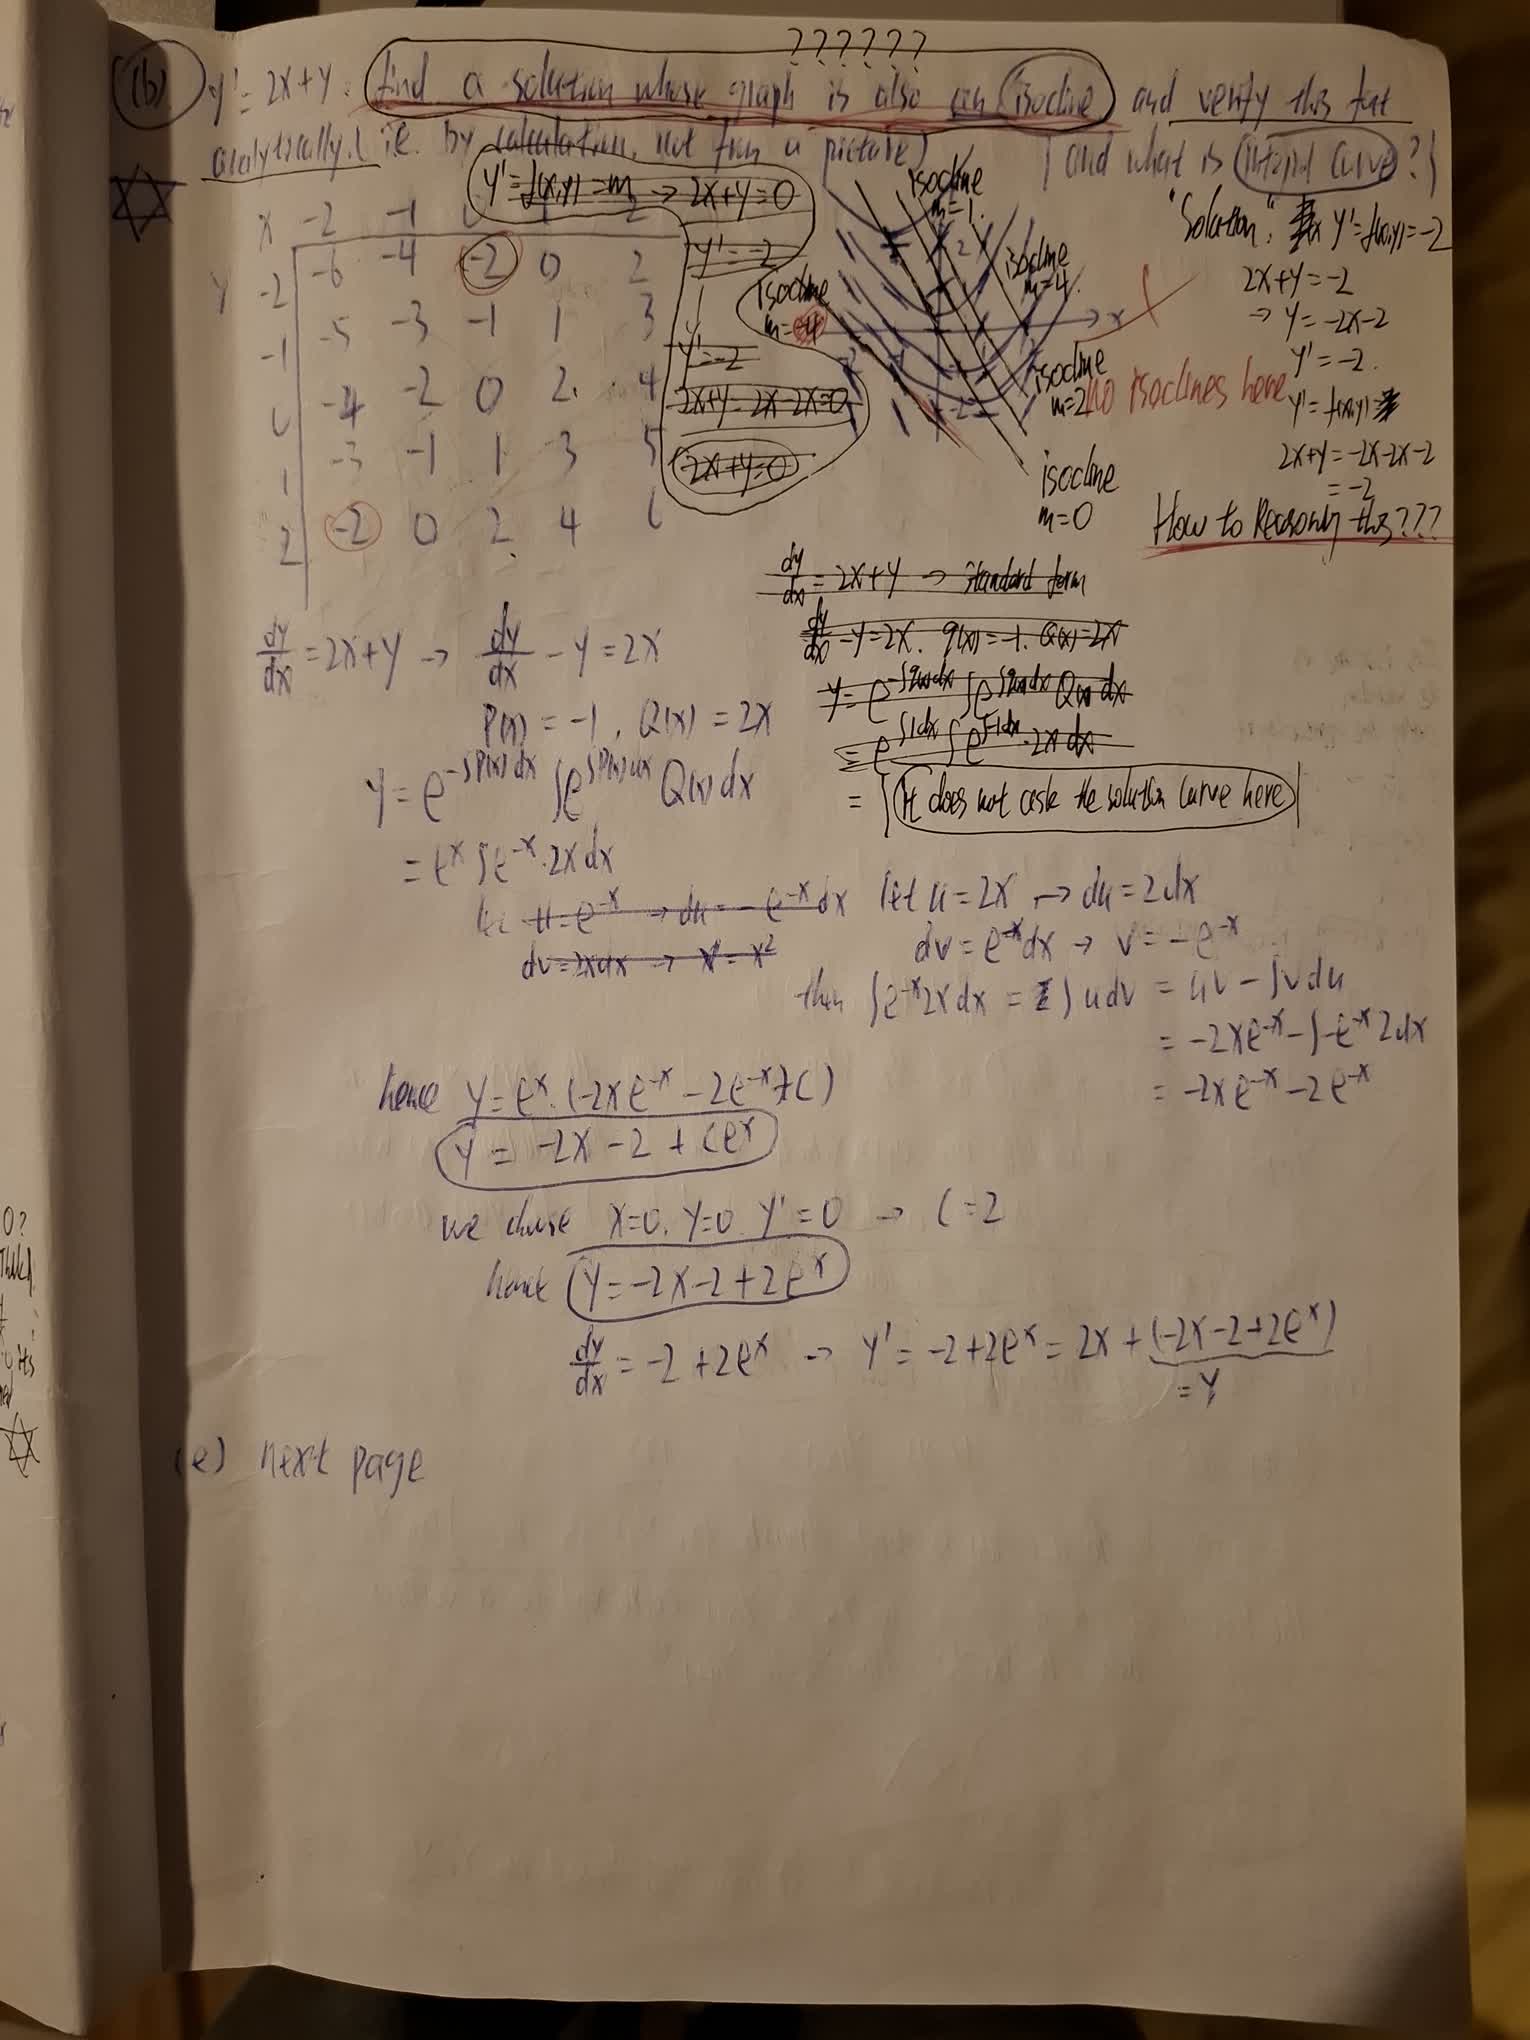 ??????
(b) y' = 2x+y. find a solution whose graph is also an isocline and verify this fact
analytically. (i.e. by calculation, not from a picture) (and what is integral curve?)
y'=f(x,y)=m → 2x+y=0
x -2 -1 0 1 2
y -2 -6 -4 -2 0 2
-1 -5 -3 -1 1 3
0 -4 -2 0 2 4
1 -3 -1 1 3 5
2 -2 0 2 4 6
y'=-2
y'=-2
2x+y=2x-2x=0
2x+y=0
isocline
m=1.
isocline
m=4.
isocline
m=-4
x
isocline
m=2
no isoclines here
isocline
m=0
"Solution": y'=f(x,y)=-2
2x+y=-2
→ y=-2x-2
y'=-2.
y'=f(x,y)
2x+y=-2x-2x-2
=-2
How to Reasoning this???
dy/dx = 2x+y → standard form
dy/dx -y=2x. q(x)=-1. Q(x)=2x
y=e^{-∫q(x)dx} ∫e^{∫q(x)dx} Q(x) dx
= e^{∫1dx} ∫e^{∫-1dx}·2x dx
= It does not ask the solution curve here
dy/dx = 2x+y → dy/dx - y = 2x
P(x) = -1, Q(x) = 2x
y = e^{-∫P(x)dx} ∫e^{∫P(x)dx} Q(x) dx
= e^x ∫e^{-x}·2x dx
let u=e^{-x} → du=-e^{-x}dx
dv=2xdx → v=x^2
let u=2x → du=2dx
dv=e^{-x}dx → v=-e^{-x}
then ∫e^{-x}2xdx = ∫udv = uv-∫vdu
= -2xe^{-x}-∫-e^{-x}2dx
= -2xe^{-x}-2e^{-x}
hence y=e^x·(-2xe^{-x}-2e^{-x}+C)
y = -2x-2+Ce^x
we chose x=0, y=0, y'=0 → C=2
hence y=-2x-2+2e^x
dy/dx = -2+2e^x → y'=-2+2e^x = 2x+(-2x-2+2e^x)
=y
(e) next page
0?